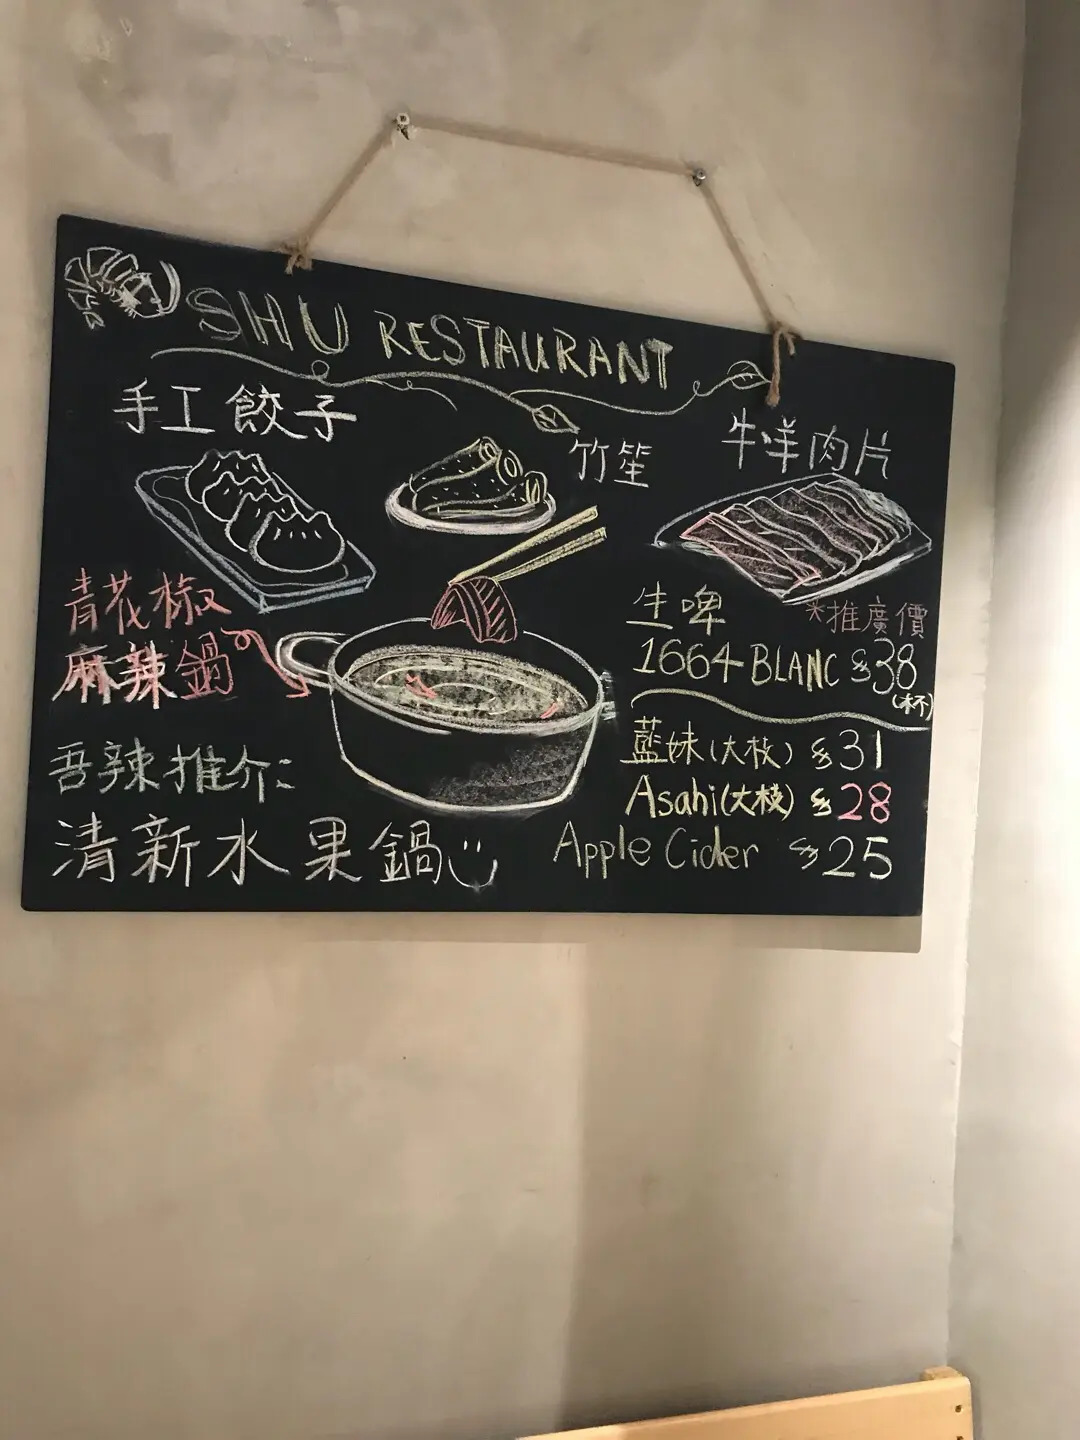 SHU RESTAURANT
手工餃子
竹笙
牛羊肉片
青花椒
麻辣鍋
生啤
*推廣價
1664 BLANC $38
(杯)
藍妹(大枝) $31
Asahi(大枝) $28
Apple Cider $25
吾辣推介:
清新水果鍋